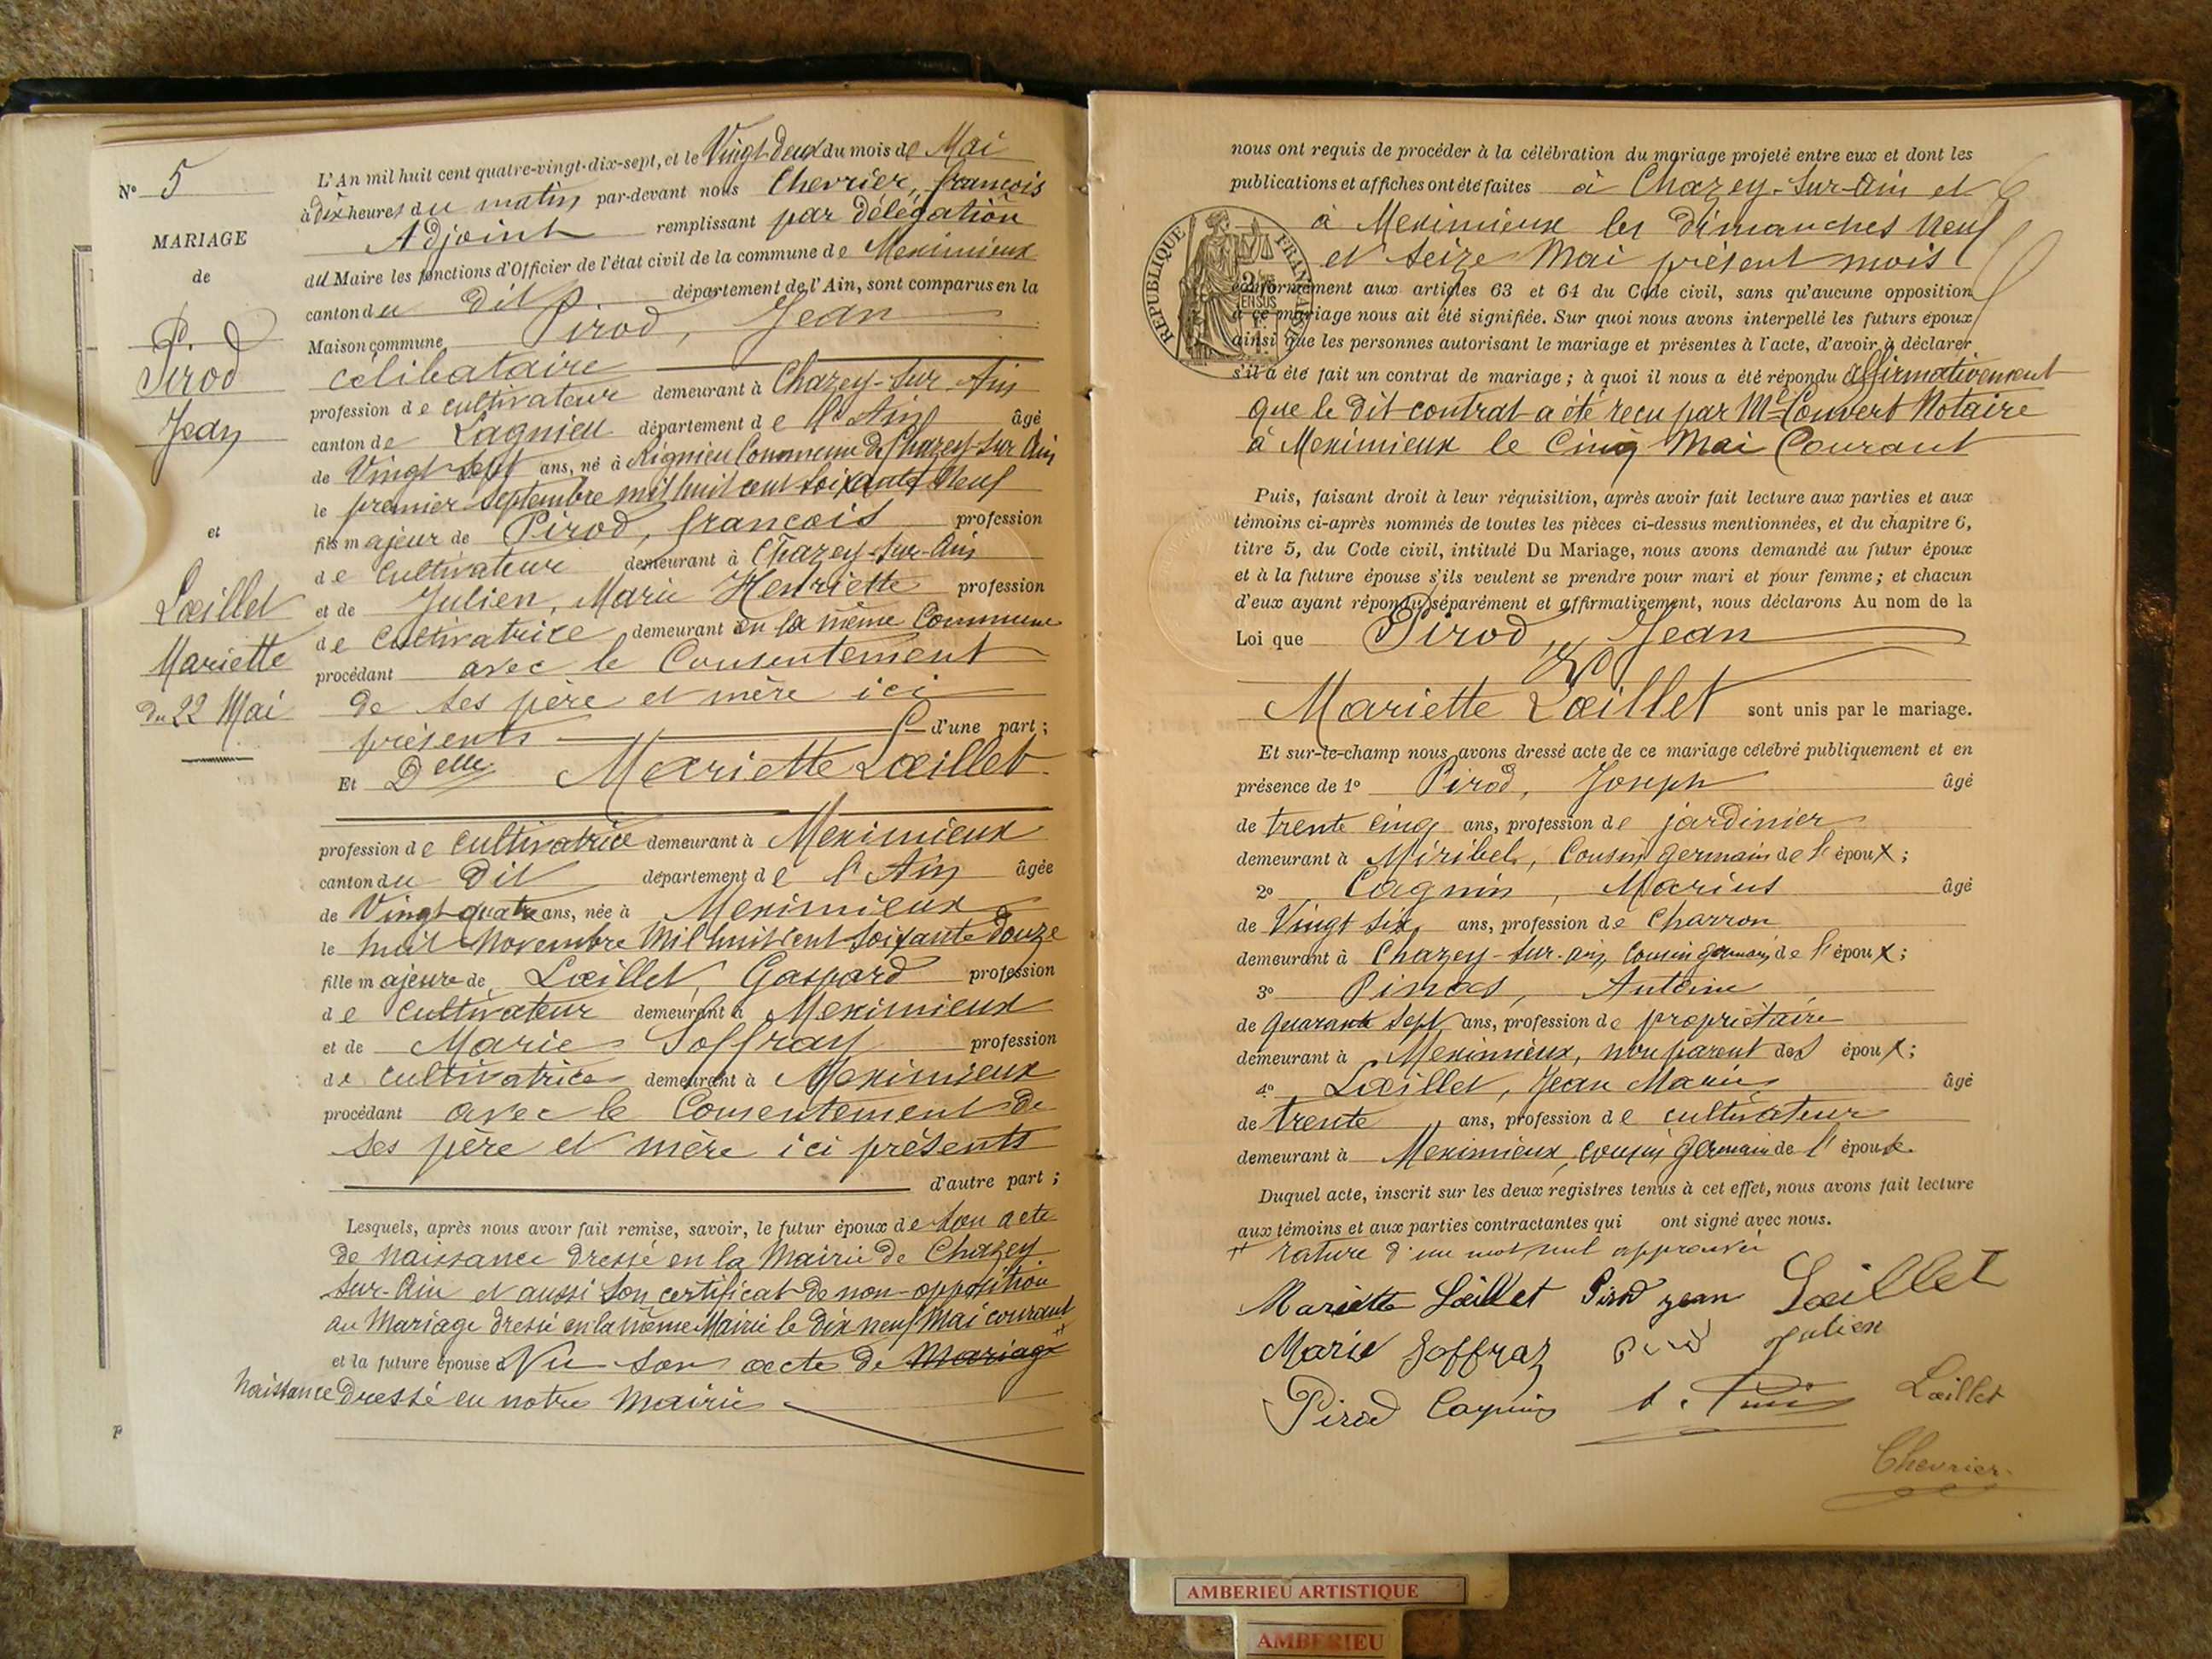 N° 5
MARIAGE
de
P.
Pirod
Jean
et
Lœillet
Mariette
du 22 Mai
L'An mil huit cent quatre-vingt-dix-sept, et le Vingt deux du mois de Mai
à dix heures du matin par-devant nous Chevrier, françois
Adjoint remplissant par délégation
du Maire les fonctions d'Officier de l'état civil de la commune de Meximieux
canton du dit département de l'Ain, sont comparus en la
Maison commune Pirod, Jean
célibataire
profession de cultivateur demeurant à Chazey-sur-Ain
canton de Lagnieu département de l'Ain âgé
de Vingt sept ans, né à Rignieu Commune de Chazey-sur Ain
le premier Septembre mil huit cent soixante Neuf
fils majeur de Pirod, françois profession
de Cultivateur demeurant à Chazey-sur-Ain
et de Julien, Marie Henriette profession
de Cultivatrice demeurant en la même Commune
procédant avec le Consentement
de ses père et mère ici
présents d'une part;
Et Delle Mariette Lœillet
profession de cultivatrice demeurant à Meximieux
canton du dit département de l'Ain âgée
de Vingt quatre ans, née à Meximieux
le huit Novembre Mil huit cent soixante douze
fille majeure de Lœillet, Gaspard profession
de Cultivateur demeurant à Meximieux
et de Marie Soffray profession
de cultivatrice demeurant à Meximieux
procédant avec le Consentement de
ses père et mère ici présents
d'autre part;
Lesquels, après nous avoir fait remise, savoir, le futur époux de son acte
de naissance dressé en la Mairie de Chazey
sur-Ain et aussi son certificat de non-opposition
au Mariage dressé en la même Mairie le dix neuf Mai courant
et la future épouse Vu son acte de Mariage
Naissance dressé en notre Mairie
nous ont requis de procéder à la célébration du mariage projeté entre eux et dont les
publications et affiches ont été faites à Chazey-sur-Ain et
à Meximieux les dimanches Neuf
et seize Mai présent mois
REPUBLIQUE FRANÇAISE
conformément aux articles 63 et 64 du Code civil, sans qu'aucune opposition
à ce mariage nous ait été signifiée. Sur quoi nous avons interpellé les futurs époux
ainsi que les personnes autorisant le mariage et présentes à l'acte, d'avoir à déclarer
s'il a été fait un contrat de mariage; à quoi il nous a été répondu affirmativement
que le dit contrat a été reçu par Me Convert Notaire
à Meximieux le Cinq Mai Courant
Puis, faisant droit à leur réquisition, après avoir fait lecture aux parties et aux
témoins ci-après nommés de toutes les pièces ci-dessus mentionnées, et du chapitre 6,
titre 5, du Code civil, intitulé Du Mariage, nous avons demandé au futur époux
et à la future épouse s'ils veulent se prendre pour mari et pour femme; et chacun
d'eux ayant répondu séparément et affirmativement, nous déclarons Au nom de la
Loi que Pirod, Jean
Et
Mariette Lœillet sont unis par le mariage.
Et sur-le-champ nous avons dressé acte de ce mariage célébré publiquement et en
présence de 1° Pirod, Joseph âgé
de trente cinq ans, profession de jardinier
demeurant à Miribel, Cousin germain de l'époux;
2° Cagnin, Marius âgé
de Vingt six ans, profession de Charron
demeurant à Chazey-sur-ain, Cousin germain de l'époux;
3° Antoine
de quarante sept ans, profession de propriétaire
demeurant à Meximieux, non parent des époux;
4° Lœillet, Jean Marie âgé
de trente ans, profession de cultivateur
demeurant à Meximieux, cousin germain de l'épouse.
Duquel acte, inscrit sur les deux registres tenus à cet effet, nous avons fait lecture
aux témoins et aux parties contractantes qui ont signé avec nous.
rature d'un mot nul approuvée
Mariette Lœillet Pirod jean Lœillet
Marie Soffraz Julien
Pirod Cagnin Lœillet
Chevrier
AMBERIEU ARTISTIQUE
AMBERIEU